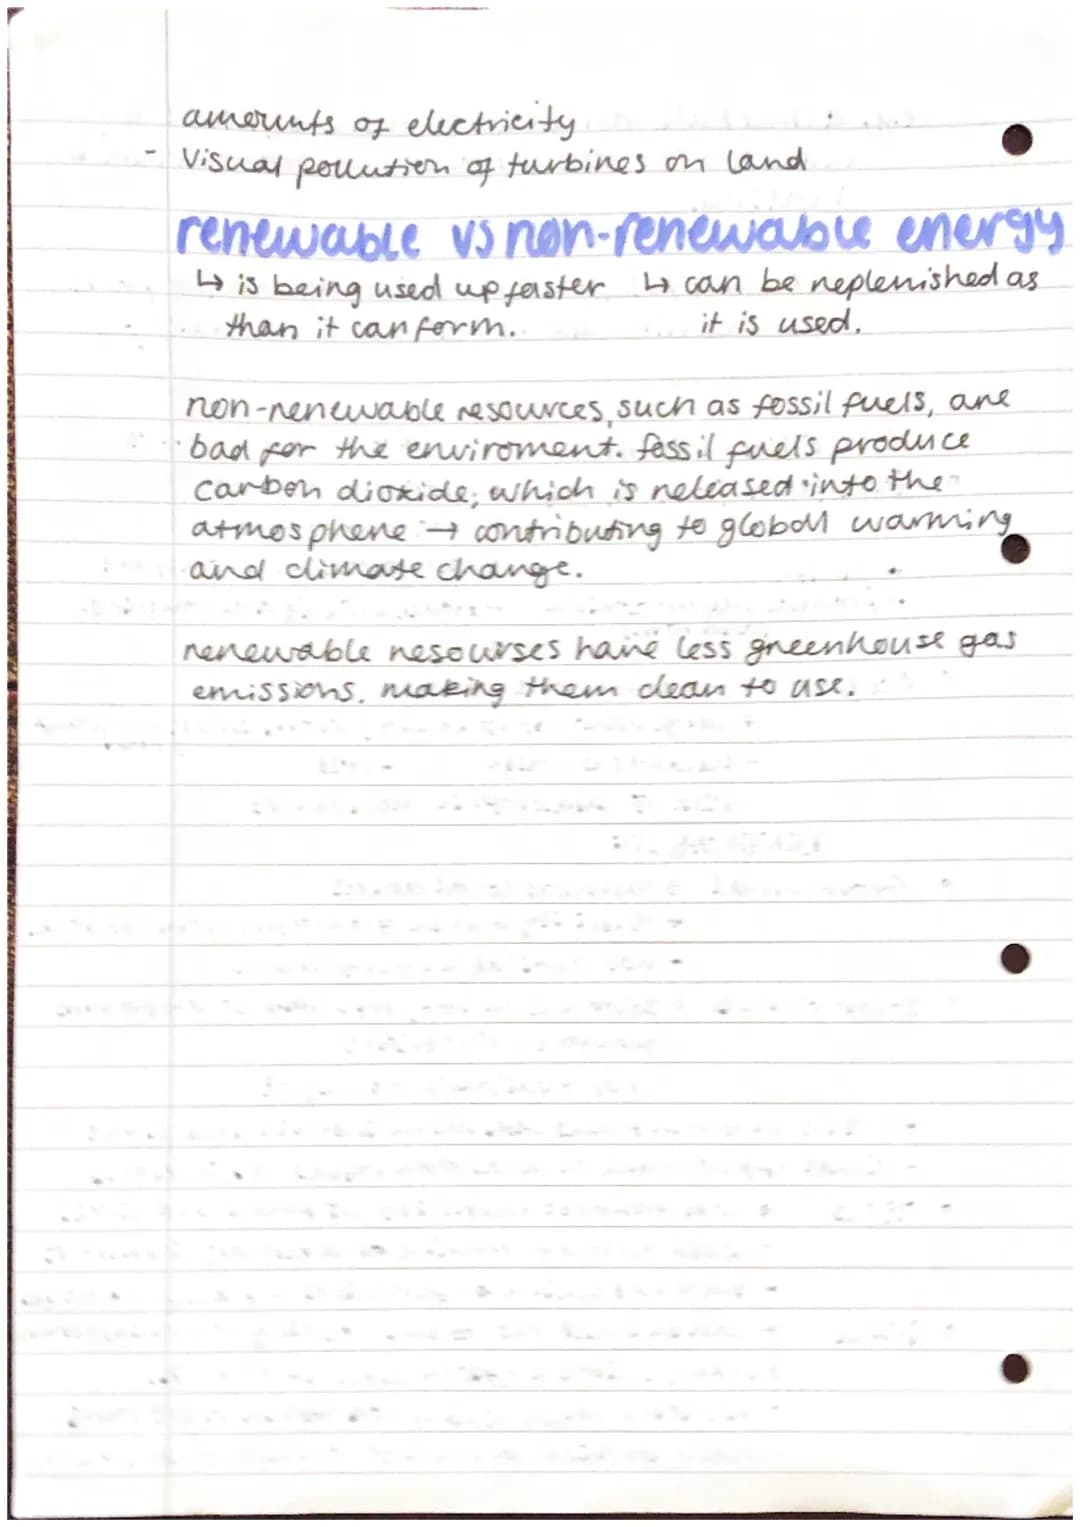 amounts of electricity
- Visual pollution of turbines on land
renewable vs non-renewable energy
↳ is being used up faster ↳ can be replenished as
than it can form. it is used.
non-renewable resources, such as fossil fuels, are
bad for the enviroment. fossil fuels produce
carbon dioxide, which is released into the
atmosphere → contributing to global warming
and climate change.
renewable resourses have less greenhouse gas
emissions. making them clean to use.